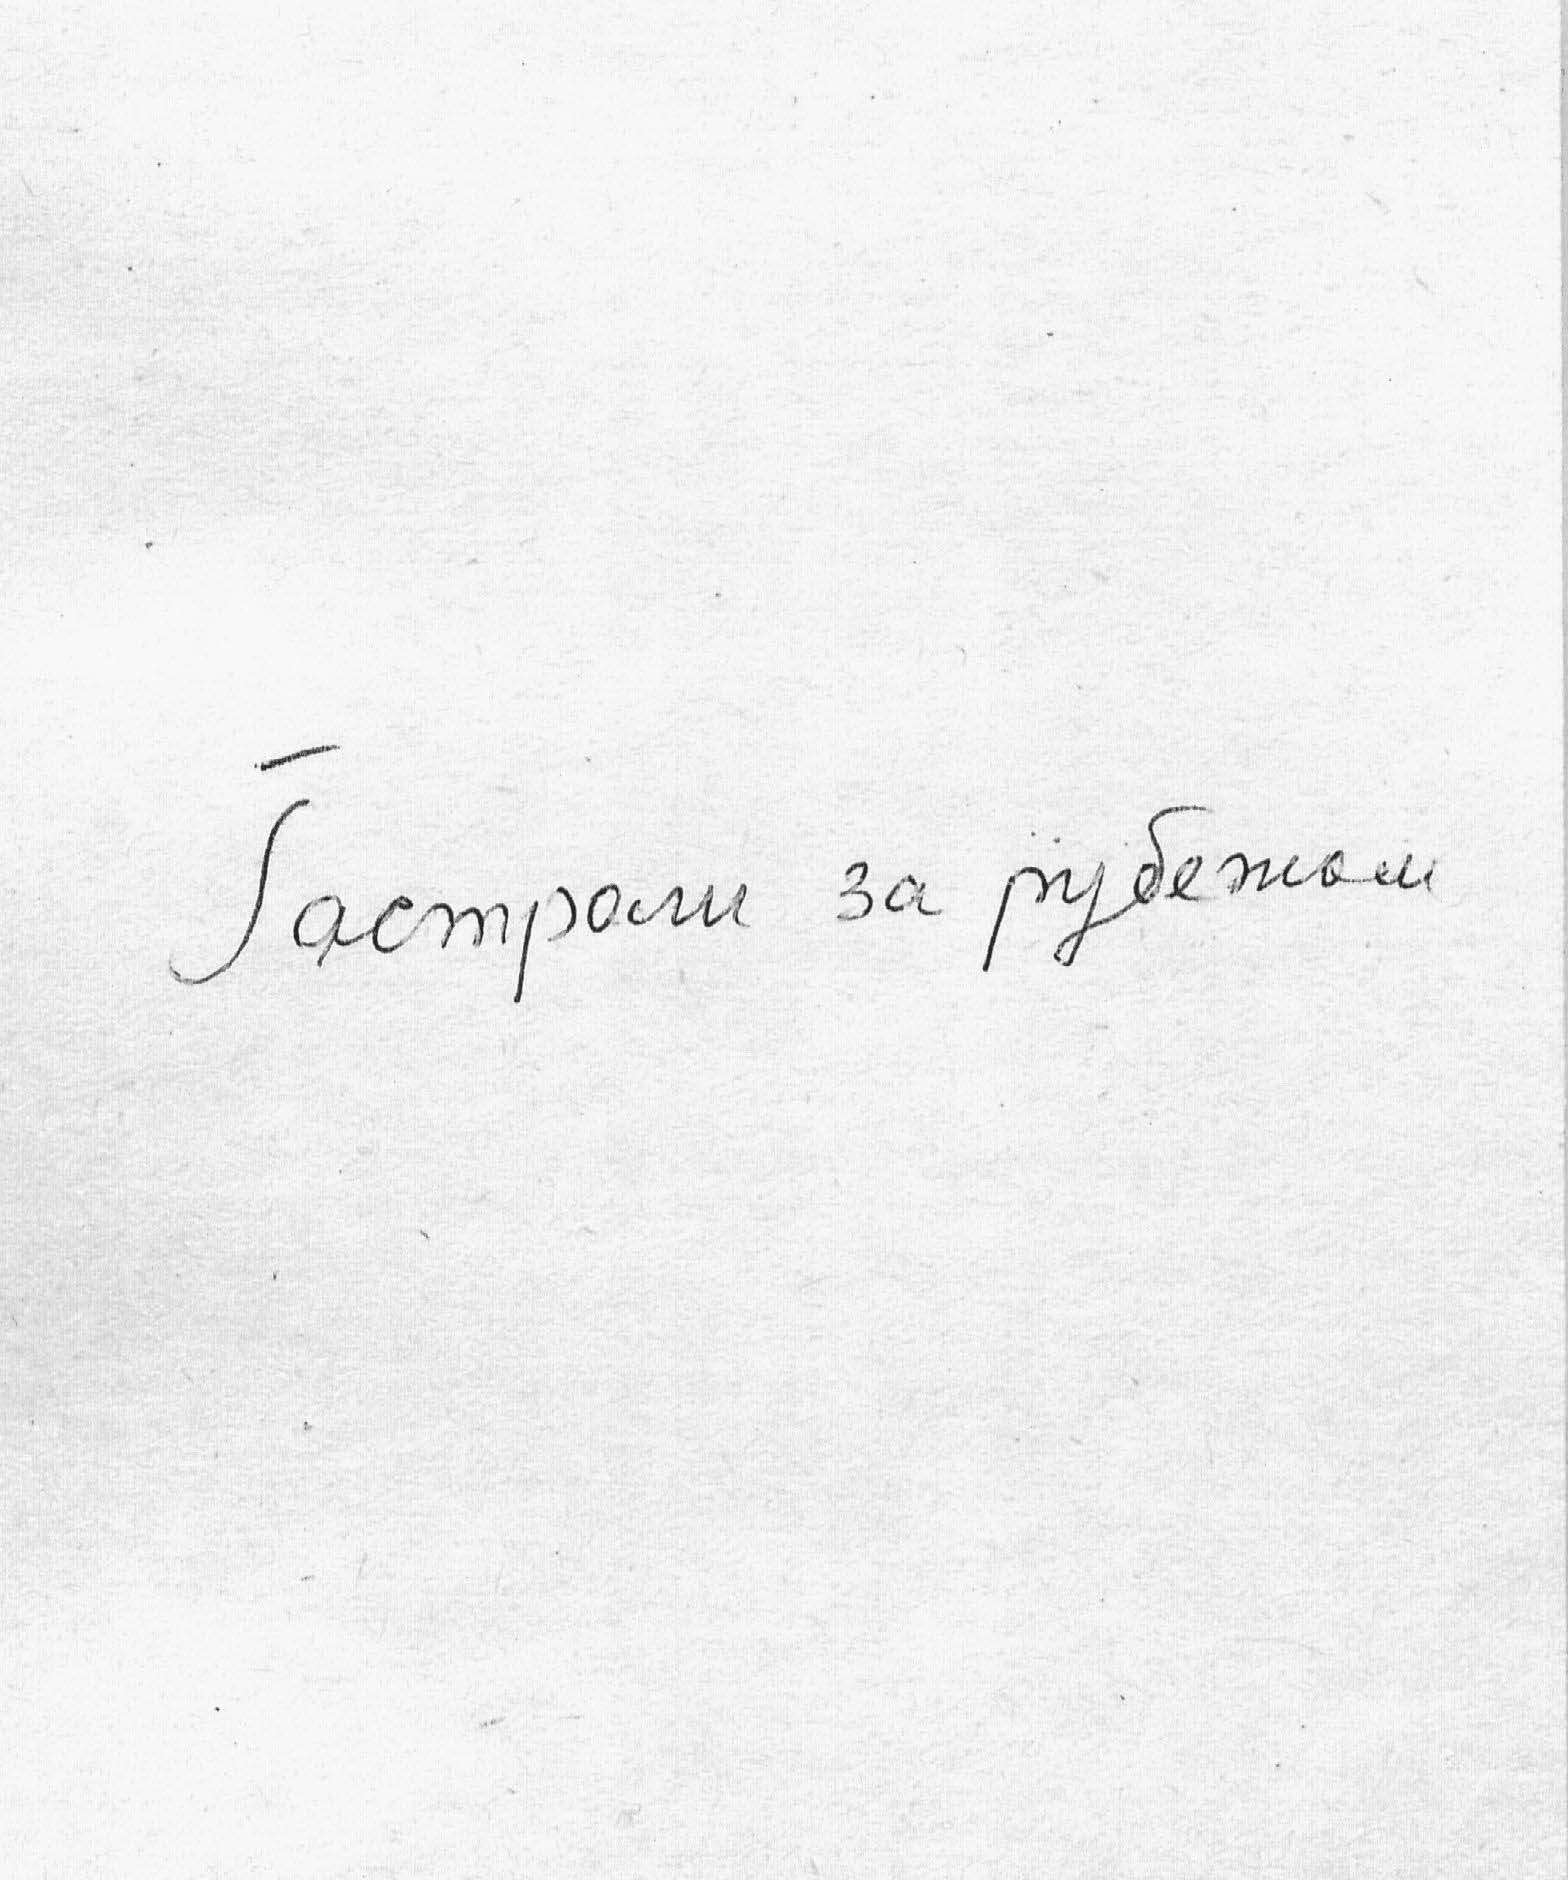 Гастроли за рубежом